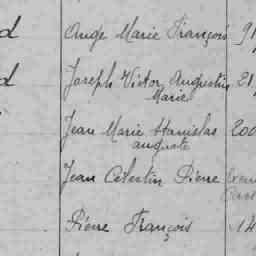 d Ange Marie François 91
d Joseph Victor Augustin 21
Marie
Jean Marie Stanislas 200
auguste
Jean Célestin Pierre
Pierre François 14